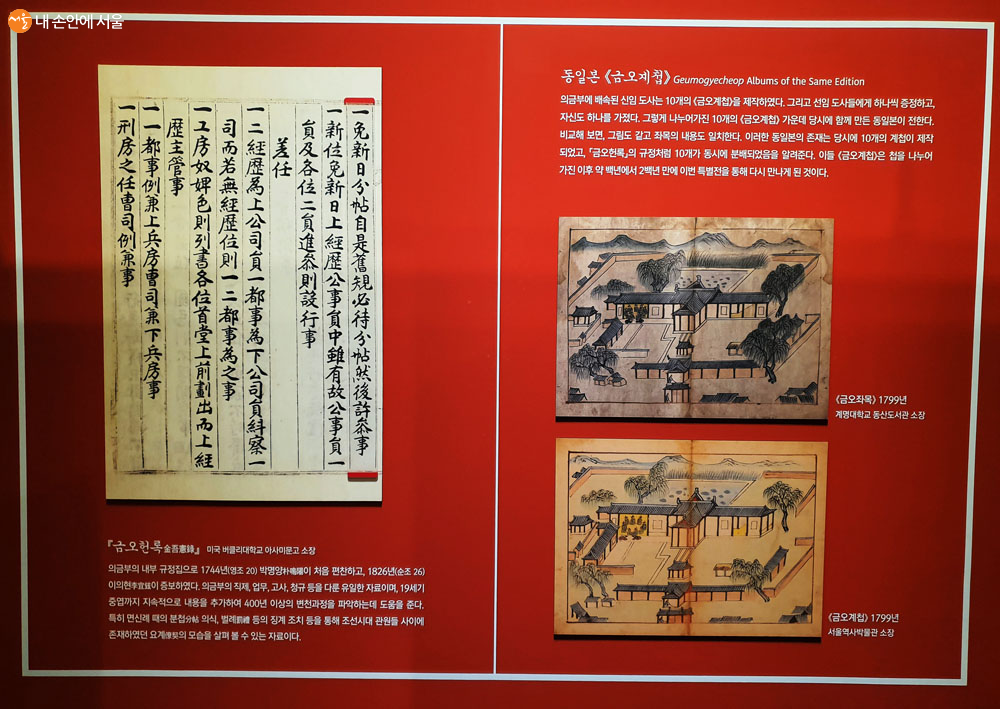 서울 내 손안에 서울
一免新日分帖自是舊規必待分帖然後許叅事
一新位免新日上經歷公事員中雖有故公事員一
員及各位二員進叅則設行事
差任
一二經歷為上公司員一都事為下公司員糾察一
司而若無經歷位則一二都事為之事
一工房奴婢色則列書各位首堂上前劃出而上經
歷主管事
一一都事例兼上兵房曹司兼下兵房事
一刑房之任曹司例兼事
『금오헌록金吾憲錄』 미국 버클리대학교 아사미문고 소장
의금부의 내부 규정집으로 1744년(영조 20) 박명양朴鳴陽이 처음 편찬하고, 1826년(순조 26)
이의현李宜鉉이 증보하였다. 의금부의 직제, 업무, 고사, 청규 등을 다룬 유일한 자료이며, 19세기
중엽까지 지속적으로 내용을 추가하여 400년 이상의 변천과정을 파악하는데 도움을 준다.
특히 면신례 때의 분첩分帖 의식, 벌례罰禮 등의 징계 조치 등을 통해 조선시대 관원들 사이에
존재하였던 요계僚契의 모습을 살펴 볼 수 있는 자료이다.
동일본 《금오계첩》 Geumogyecheop Albums of the Same Edition
의금부에 배속된 신임 도사는 10개의 《금오계첩》을 제작하였다. 그리고 선임 도사들에게 하나씩 증정하고,
자신도 하나를 가졌다. 그렇게 나누어가진 10개의 《금오계첩》 가운데 당시에 함께 만든 동일본이 전한다.
비교해 보면, 그림도 같고 좌목의 내용도 일치한다. 이러한 동일본의 존재는 당시에 10개의 계첩이 제작
되었고, 『금오헌록』의 규정처럼 10개가 동시에 분배되었음을 알려준다. 이들 《금오계첩》은 첩을 나누어
가진 이후 약 백년에서 2백년 만에 이번 특별전을 통해 다시 만나게 된 것이다.
《금오좌목》 1799년
계명대학교 동산도서관 소장
《금오계첩》 1799년
서울역사박물관 소장